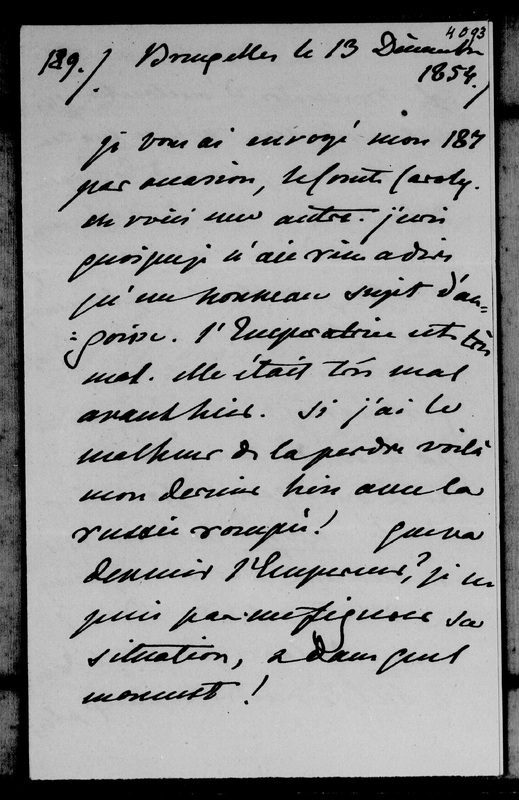 4093
189./ Bruxelles le 13 Décembre
1854./
je vous ai envoyé mon 187
par occasion, le Comte Caroly.
en voici une autre. j'écris
quoique je n'aie rien a dire
qu'un nouveau sujet d'an=
=goisse. l'Impératrice est très
mal. elle était très mal
avant hier. si j'ai le
malheur de la perdre voilà
mon dernier lien avec la
russie rompu! que va
devenir l'Empereur? je ne
puis pas me figurer sa
situation, a dans quel
moment!